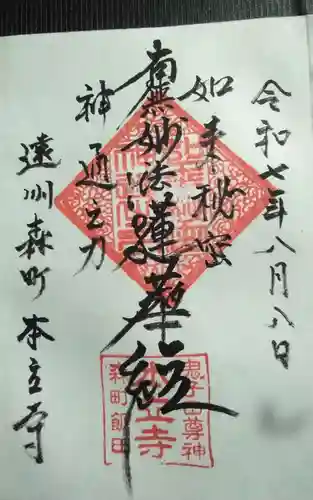 令和七年八月八日
如来秘密
南無妙法蓮華経
神通之力
遠州森町 本立寺
鬼子母尊神
本立寺
森町飯田